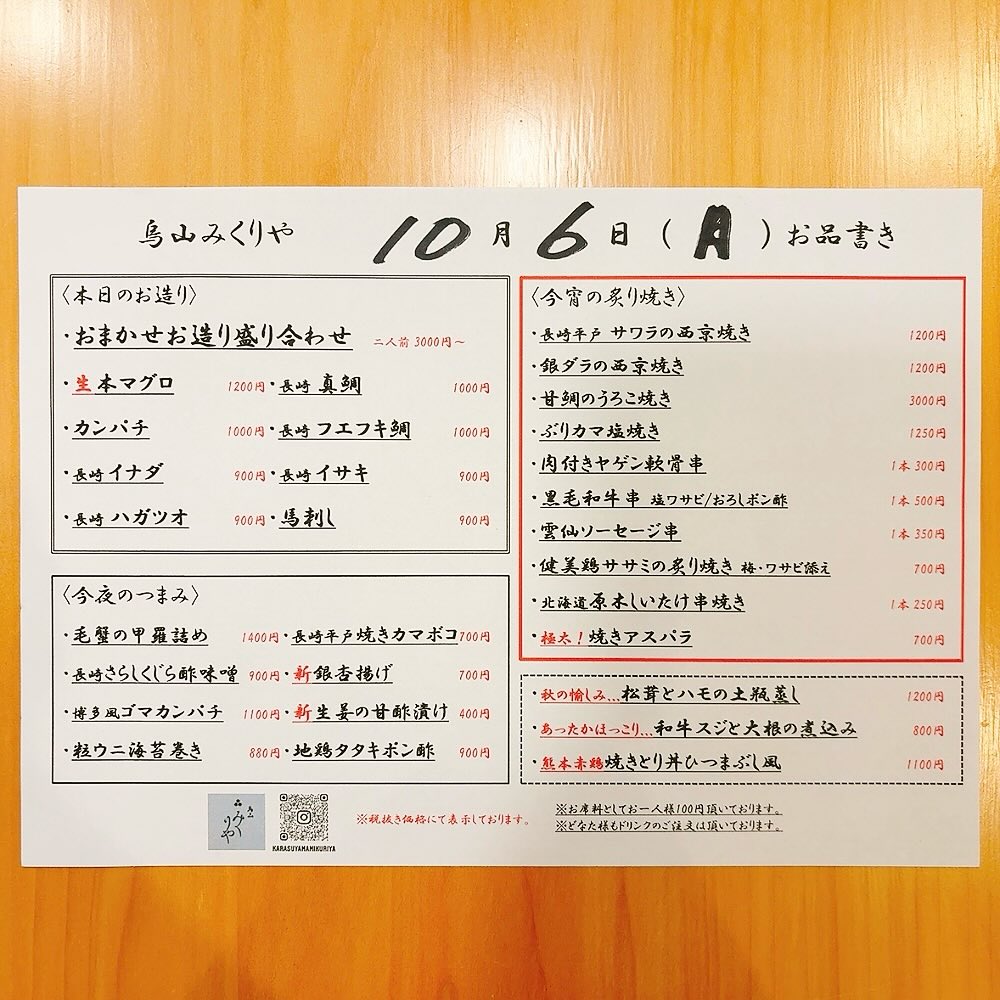 烏山みくりや 10月6日(月)お品書き
〈本日のお造り〉
・おまかせお造り盛り合わせ 二人前 3000円〜
・生本マグロ 1200円
・長崎 真鯛 1000円
・カンパチ 1000円
・長崎 フエフキ鯛 1000円
・長崎 イナダ 900円
・長崎 イサキ 900円
・長崎 ハガツオ 900円
・馬刺し 900円
〈今夜のつまみ〉
・毛蟹の甲羅詰め 1400円
・長崎平戸焼きカマボコ 700円
・長崎さらしくじら酢味噌 900円
・新銀杏揚げ 700円
・博多風ゴマカンパチ 1100円
・新生姜の甘酢漬け 400円
・粒ウニ海苔巻き 880円
・地鶏タタキポン酢 900円
〈今宵の炙り焼き〉
・長崎平戸 サワラの西京焼き 1200円
・銀ダラの西京焼き 1200円
・甘鯛のうろこ焼き 3000円
・ぶりカマ塩焼き 1250円
・肉付きヤゲン軟骨串 1本 300円
・黒毛和牛串 塩ワサビ/おろしポン酢 1本 500円
・雲仙ソーセージ串 1本 350円
・健美鶏ササミの炙り焼き 梅・ワサビ添え 700円
・北海道原木しいたけ串焼き 1本 250円
・極太!焼きアスパラ 700円
・秋の愉しみ...松茸とハモの土瓶蒸し 1200円
・あったかほっこり...和牛スジと大根の煮込み 800円
・熊本赤鶏焼きとり丼ひつまぶし風 1100円
みくりや
KARASUYAMAMIKURIYA
※税抜き価格にて表示しております。
※お席料としてお一人様100円頂いております。
※どなた様もドリンクのご注文は頂いております。